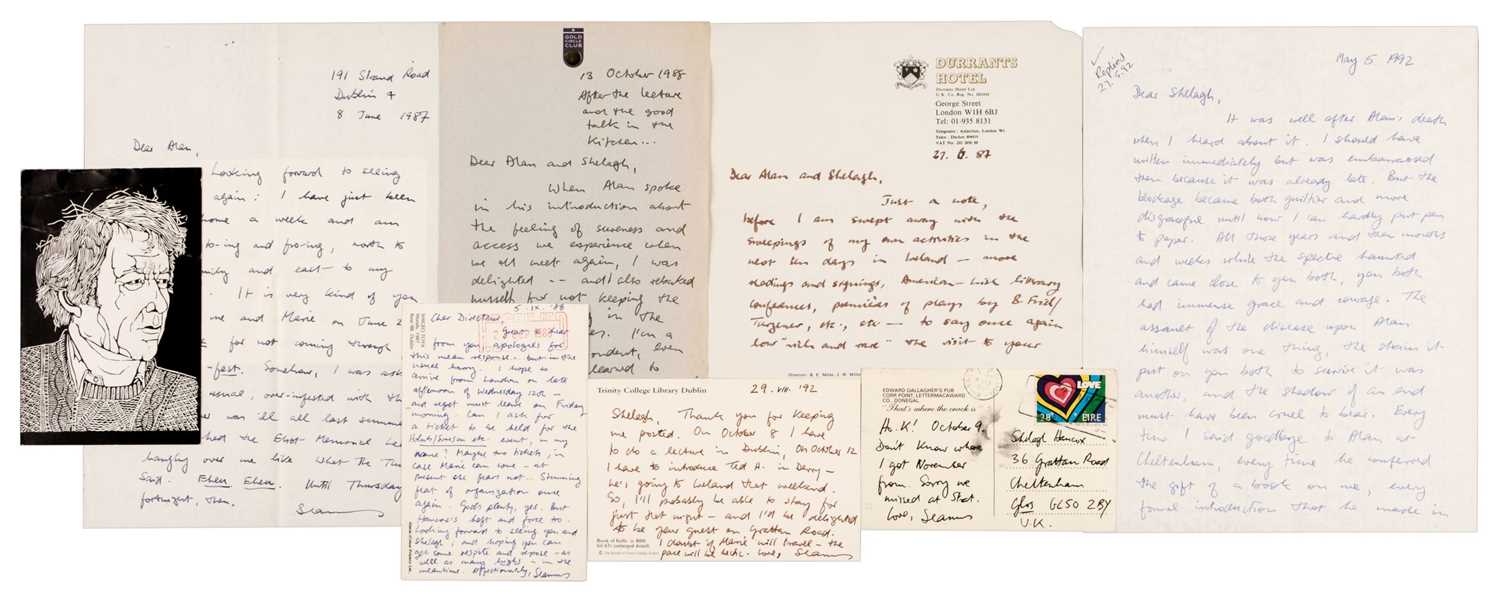 191 Strand Road
Dublin 4
8 June 1987
Dear Alan,
Looking forward to seeing
again: I have just been
home a week and am
to-ing and fro-ing, north to
and east to my
. It is very kind of you
me and Marie on June 2
for not coming through
-fest. Somehow, I was ask
usual, over-infested with th
we was ill all last summer
had the Eliot Memorial Lec
hanging over me like What The Thu
Said. Eheu Eheu. Until Thursday
fortnight, then.
Seamus
GOLD
CIRCLE
CLUB
13 October 1988
After the lecture
and the good
talk in the
kitchen...
Dear Alan and Shelagh,
When Alan spoke
in his introduction about
the feeling of sureness and
access we experience when
we all meet again, I was
delighted -- and I also rebuked
myself for not keeping the
I'm a
ondent, even
learned to
DURRANTS
HOTEL
Durrants Hotel Ltd
George Street
London W1H 6BJ
Tel: 01-935 8131
27. 6. 87
Dear Alan and Shelagh,
Just a note,
before I am swept away with the
sweepings of my own activities in the
next ten days in Ireland — more
readings and signings, American-Irish literary
conferences, premières of plays by B. Friel/
Turgenev, etc., etc — to say once again
how "rich and rare" the visit to your
✓
Replied
27.5.92
May 5 1992
Dear Shelagh,
It was well after Alan's death
when I heard about it. I should have
written immediately but was embarrassed
then because it was already late. But the
blockage became both guiltier and more
disgraceful until now I can hardly put pen
to paper. All those years and then months
and weeks while the spectre haunted
and came close to you both, you both
had immense grace and courage. The
assault of the disease upon Alan
himself was one thing, the strain it
put on you both to survive it was
another, and the shadow of an end
must have been cruel to bear. Every
time I said goodbye to Alan in
Cheltenham, every time he conferred
the gift of a book on me, every
formal introduction that he made in
5. IX. '88
Cher Directeur,
Great to hear
from you, apologies for
this mean response. but in the
usual hurry. I hope to
arrive from London on late
afternoon of Wednesday 12th —
and regret must leave on Friday
morning. Can I ask for
a ticket to be held for the
etc event, in my
name? Maybe two tickets, in
case Marie can come — at
present she fears not. Stunning
feat of organization once
again. God's plenty, yes. But
best and force to.
Looking forward to seeing you and
Shelagh, and hoping you can
get some respite and repose — as
well as many — in the
meantime. Affectionately, Seamus
Trinity College Library Dublin
29. VIII. '92
Shelagh, Thank you for keeping
me posted. On October 8 I have
to do a lecture in Dublin, on October 12
I have to introduce Ted H. in Derry —
he's going to Ireland that weekend.
So, I'll probably be able to stay for
just that night — and I'd be delighted
to be your guest on Grattan Road.
I doubt if Marie will travel — the
pace will be hectic. Love, Seamus
EDWARD GALLAGHER'S PUB
CORR POINT, LETTERMACAWARD
CO. DONEGAL
"That's where the crack is
Ah, K! October 9.
Don't know where
I got November
from. Sorry we
missed at Shot.
Love, Seamus
LOVE
28
ÉIRE
Shelagh Hancox
36 Grattan Road
Cheltenham
Glos GL50 2BY
U.K.